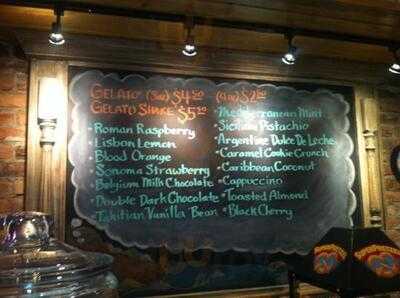 GELATO (5oz) $4.50 (4oz) $2.50
GELATO SHAKE $5.50
• Roman Raspberry
• Lisbon Lemon
• Blood Orange
• Sonoma Strawberry
• Belgium Milk Chocolate
• Double Dark Chocolate
• Tahitian Vanilla Bean
• Mediterranean Mint
• Sicilian Pistachio
• Argentine Dulce De Leche
• Caramel Cookie Crunch
• Caribbean Coconut
• Cappuccino
• Toasted Almond
• Black Cherry